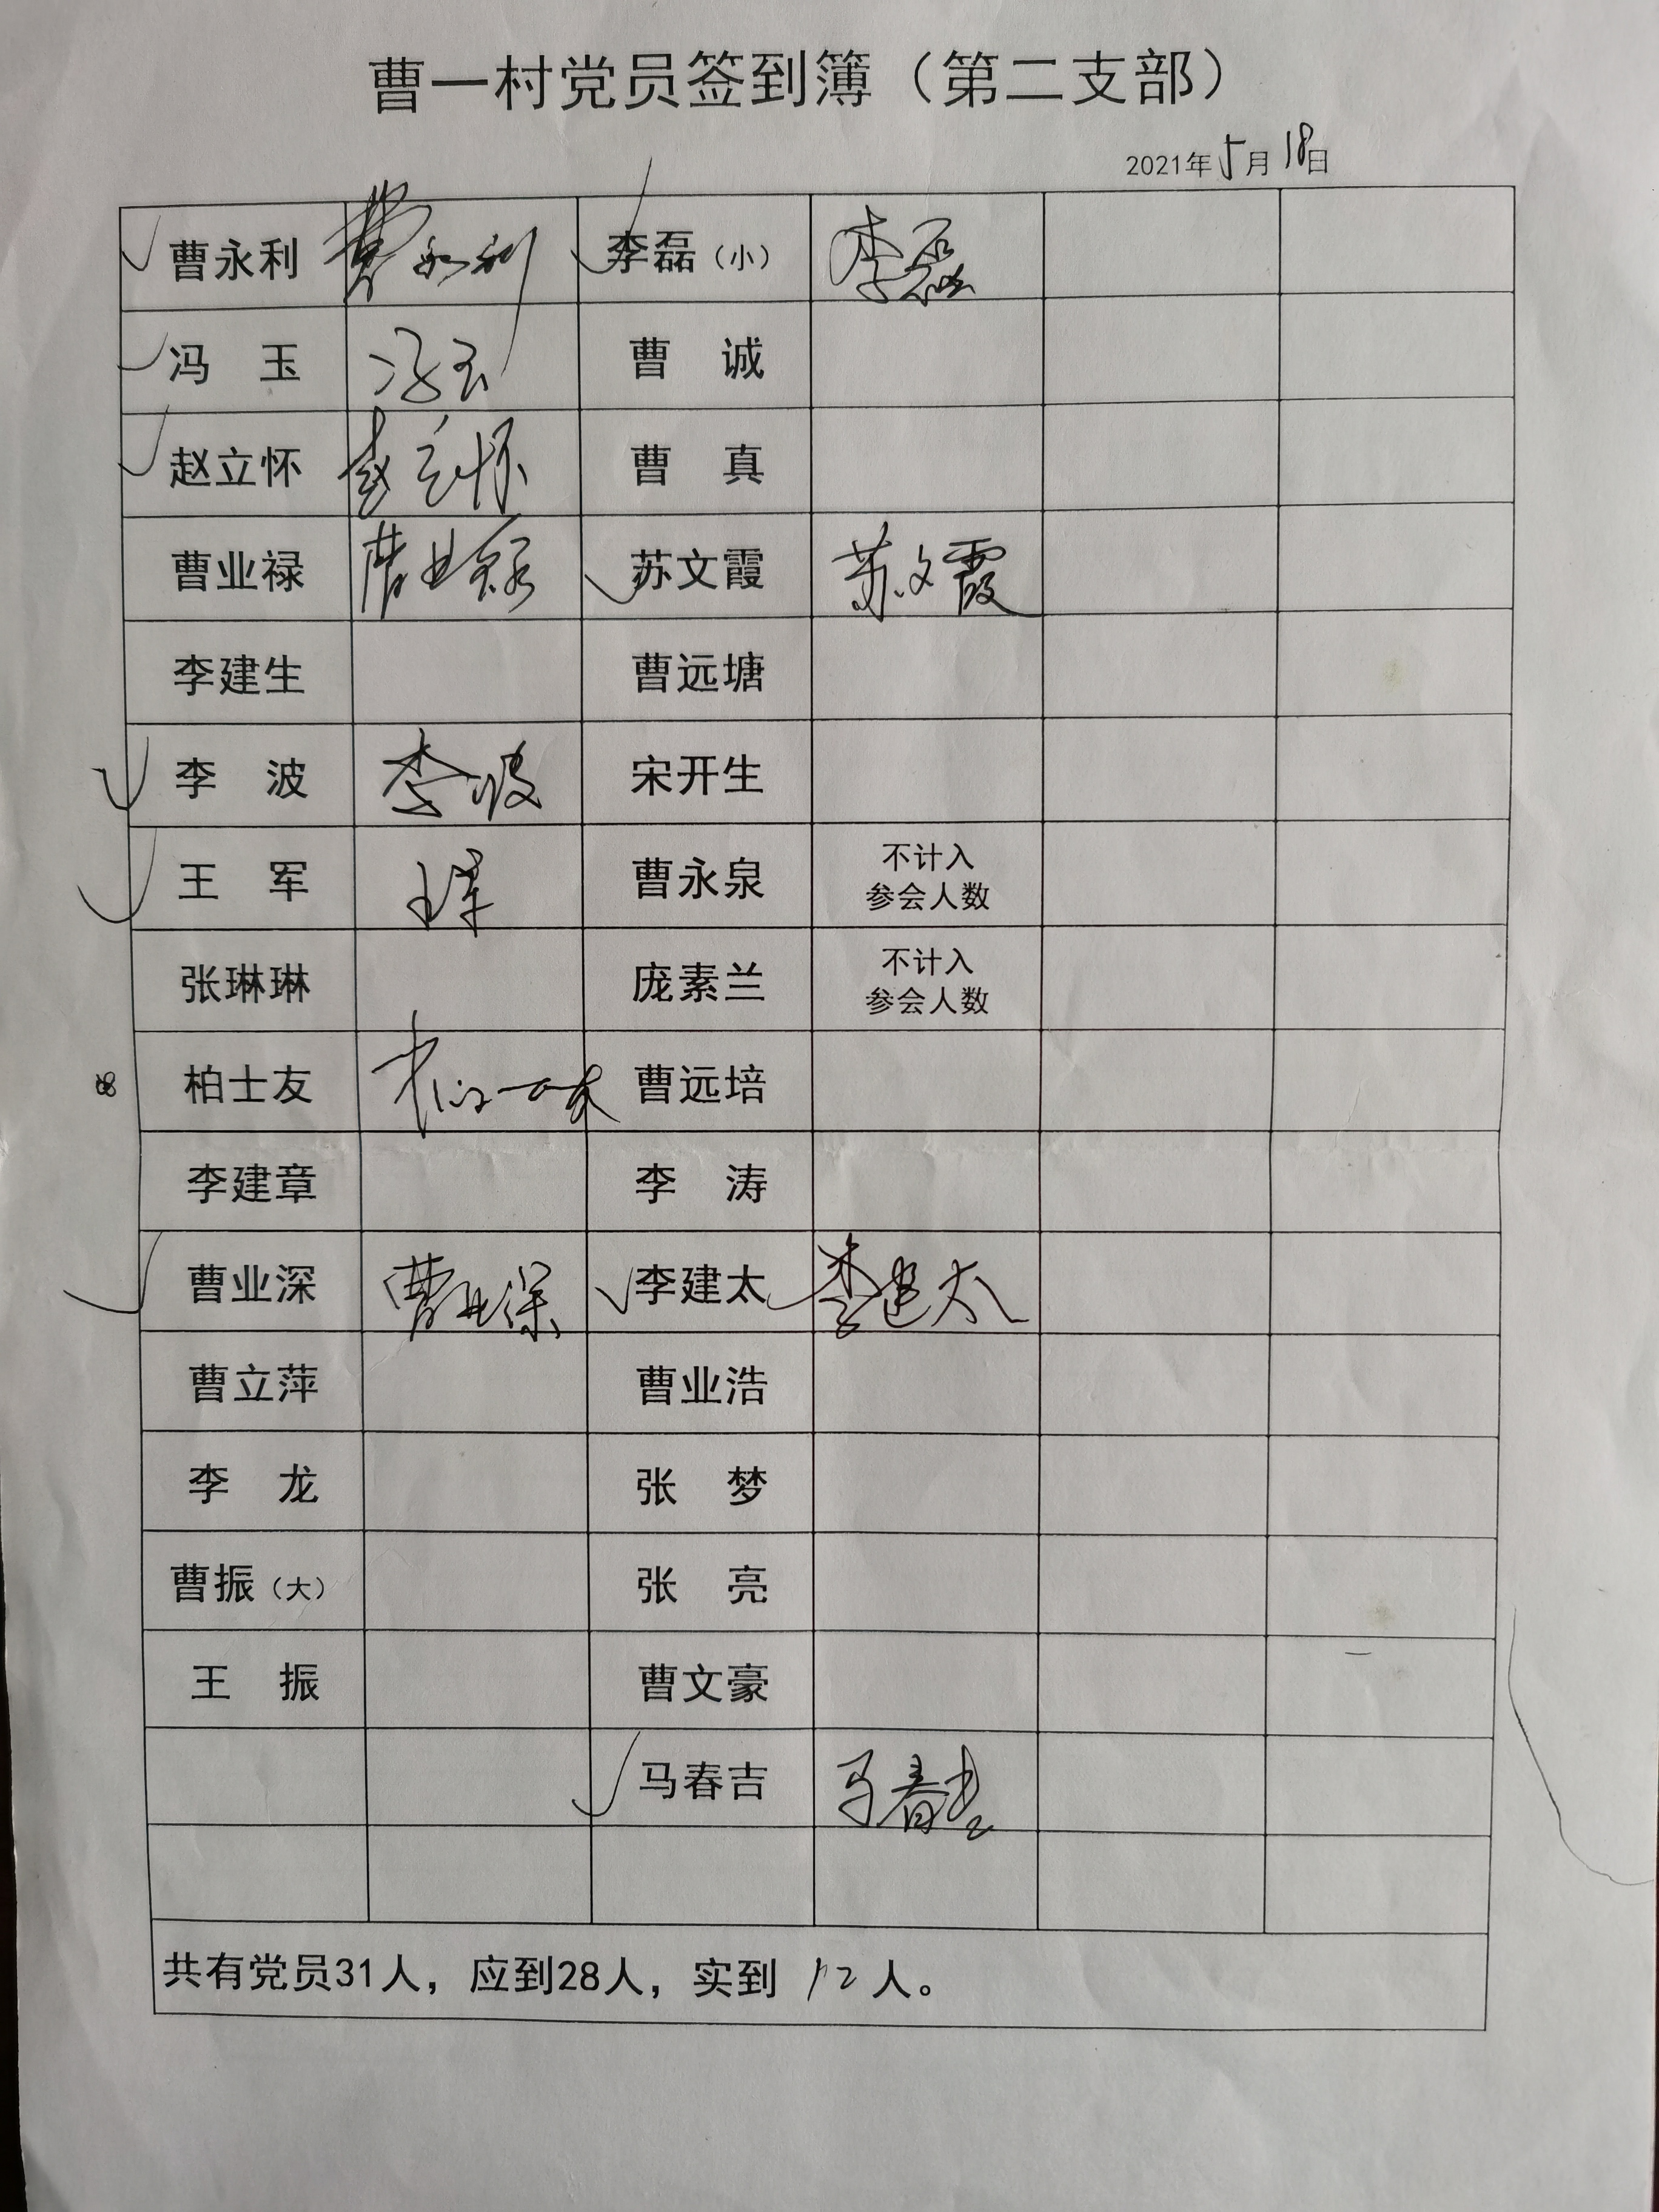 曹一村党员签到簿（第二支部）
2021年5月18日
曹永利 曹永利 李磊（小） 李磊
冯 玉 冯玉 曹 诚
赵立怀 赵立怀 曹 真
曹业禄 曹业禄 苏文霞 苏文霞
李建生 曹远塘
李 波 李波 宋开生
王 军 王军 曹永泉 不计入
参会人数
张琳琳 庞素兰 不计入
参会人数
柏士友 柏士友 曹远培
李建章 李 涛
曹业深 曹业深 李建太 李建太
曹立萍 曹业浩
李 龙 张 梦
曹振（大） 张 亮
王 振 曹文豪
马春吉 马春吉
共有党员31人，应到28人，实到 12 人。